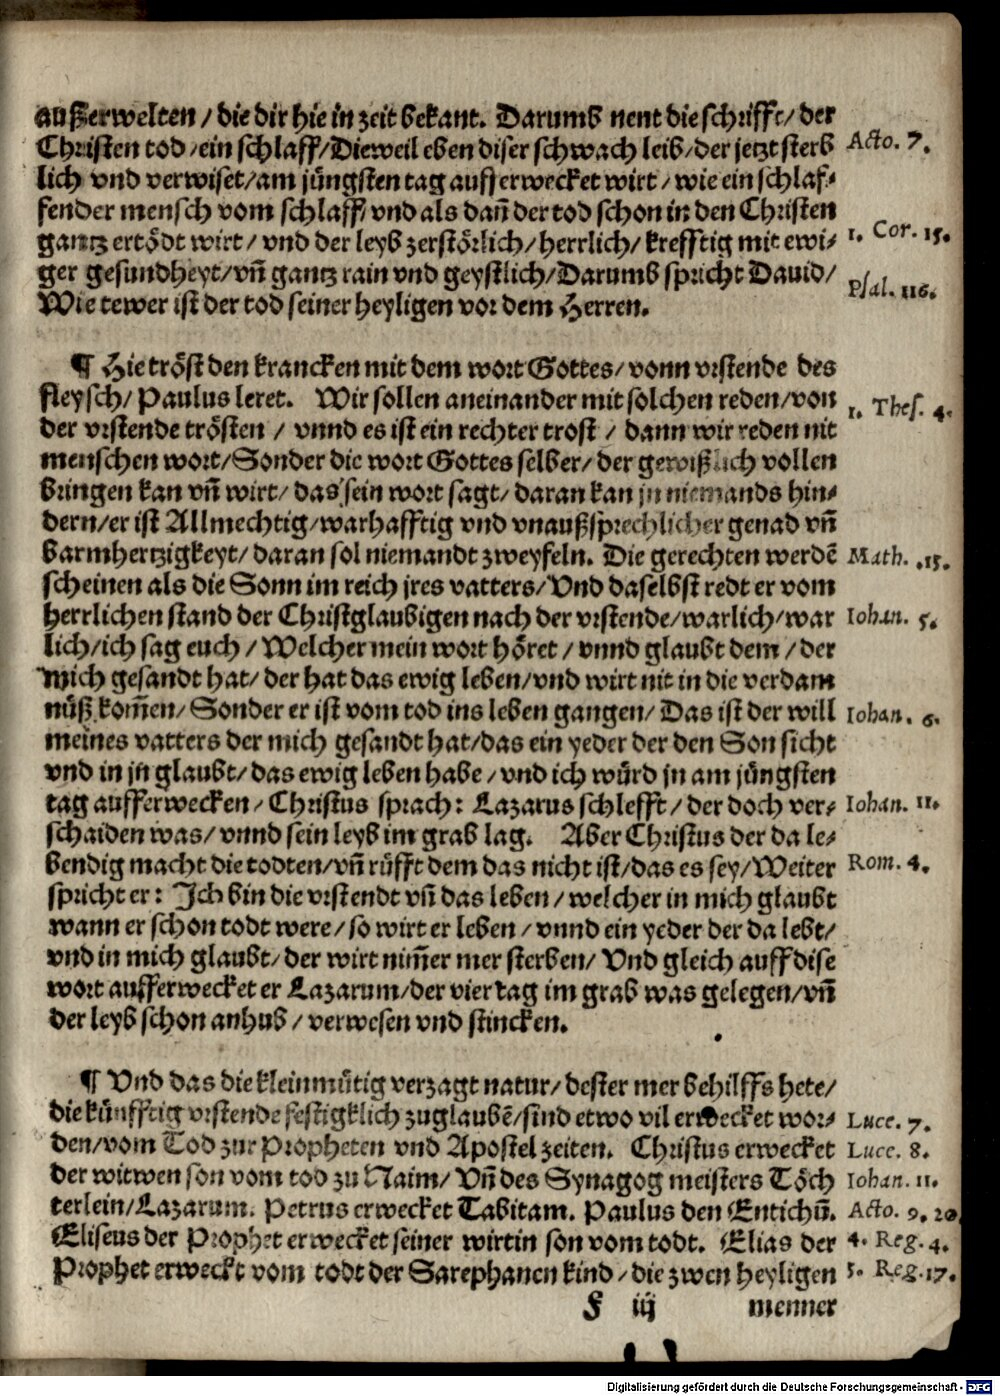 außerwelten / die dir hie in zeit bekant. Darumb nent die schrifft / der
Christen tod / ein schlaff / Dieweil eben diser schwach leib / der jetzt sterb Acto. 7.
lich vnd verwiset / am jüngsten tag aufferwecket wirt / wie ein schlaf⸗
fender mensch vom schlaff / vnd als dañ der tod schon in den Christen
gantz ertödt wirt / vnd der leyb zerstörlich / herrlich / krefftig mit ewi⸗ 1. Cor. 15.
ger gesundheyt / vñ gantz rain vnd geystlich / Darumb spricht Dauid /
Wie tewer ist der tod seiner heyligen vor dem Herren. Psal. 116.
¶ Hie tröst den krancken mit dem wort Gottes / vonn vrstende des
fleysch / Paulus leret. Wir sollen aneinander mit solchen reden / von 1. Thes. 4.
der vrstende trösten / vnnd es ist ein rechter trost / dann wir reden nit
menschen wort / Sonder die wort Gottes selber / der gewißlich vollen
bringen kan vñ wirt / das sein wort sagt / daran kan jn niemands hin⸗
dern / er ist Allmechtig / warhafftig vnd vnaußsprechlicher genad vñ
barmhertzigkeyt / daran sol niemandt zweyfeln. Die gerechten werdē Math. .15.
scheinen als die Sonn im reich jres vatters / Vnd daselbst redt er vom
herrlichen stand der Christglaubigen nach der vrstende / warlich / war Iohan. 5.
lich / ich sag euch / Welcher mein wort höret / vnnd glaubt dem / der
mich gesandt hat / der hat das ewig leben / vnd wirt nit in die verdam
nüß kom̄en / Sonder er ist vom tod ins leben gangen / Das ist der will Iohan. 6.
meines vatters der mich gesandt hat / das ein yeder der den Son sicht
vnd in jn glaubt / das ewig leben habe / vnd ich würd jn am jüngsten
tag aufferwecken / Christus sprach: Lazarus schlefft / der doch ver⸗ Iohan. 11.
schaiden was / vnnd sein leyb im grab lag. Aber Christus der da le⸗
bendig macht die todten / vñ rüfft dem das nicht ist / das es sey / Weiter Rom. 4.
spricht er: Ich bin die vrstendt vñ das leben / welcher in mich glaubt
wann er schon todt were / so wirt er leben / vnnd ein yeder der da lebt /
vnd in mich glaubt / der wirt nim̄er mer sterben / Vnd gleich auff dise
wort aufferwecket er Lazarum / der vier tag im grab was gelegen / vñ
der leyb schon anhub / verwesen vnd stincken.
¶ Vnd das die kleinmütig verzagt natur / dester mer behilffs hete /
die künfftig vrstende festigklich zuglaubē / sind etwo vil erwecket wor⸗ Luce. 7.
den / vom Tod zur Propheten vnd Apostel zeiten. Christus erwecket Luce. 8.
der witwen son vom tod zu Naim / Vñ des Synagog meisters Töch Iohan. 11.
terlein / Lazarum. Petrus erwecket Tabitam. Paulus den Entichū. Acto. 9. 20
Eliseus der Prophet erwecket seiner wirtin son vom todt. Elias der 4. Reg. 4.
Prophet erweckt vom todt der Sarephanen kind / die zwen heyligen 3. Reg. 17.
F iij menner
Digitalisierung gefördert durch die Deutsche Forschungsgemeinschaft - DFG